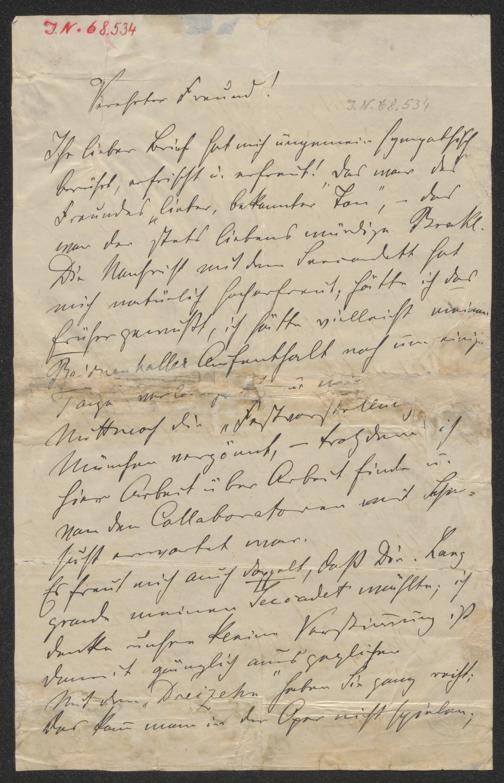 I.N. 68.534
Verehrter Freund!
I.N. 68.534
Ihr lieber Brief hat mich ungemein sympathisch
berührt, erfrischt u. erfreut! Das war des
Freundes „lieber, bekannter Ton", – das
war der stets liebenswürdige Brakl.
Die Nachricht mit dem Seecadett hat
mich natürlich hocherfreut, hätte ich das
früher gewußt, ich hätte vielleicht meinen
Reichenhaller Aufenthalt noch um einige
Tage
Mittwoch die „Festvorstellung
München vergönnt, – trotzdem ich
hier Arbeit über Arbeit finde u.
von den Collaboratoren mit Sehn-
sucht erwartet war.
Es freut mich auch doppelt, daß Dir. Lang
grade meinen Seecadet wählte; ich
denke unsere kleine Verstimmung ist
damit gänzlich ausgeglichen
Mit den „Dreizehn" haben Sie ganz recht;
das kann man in der Oper nicht spielen,